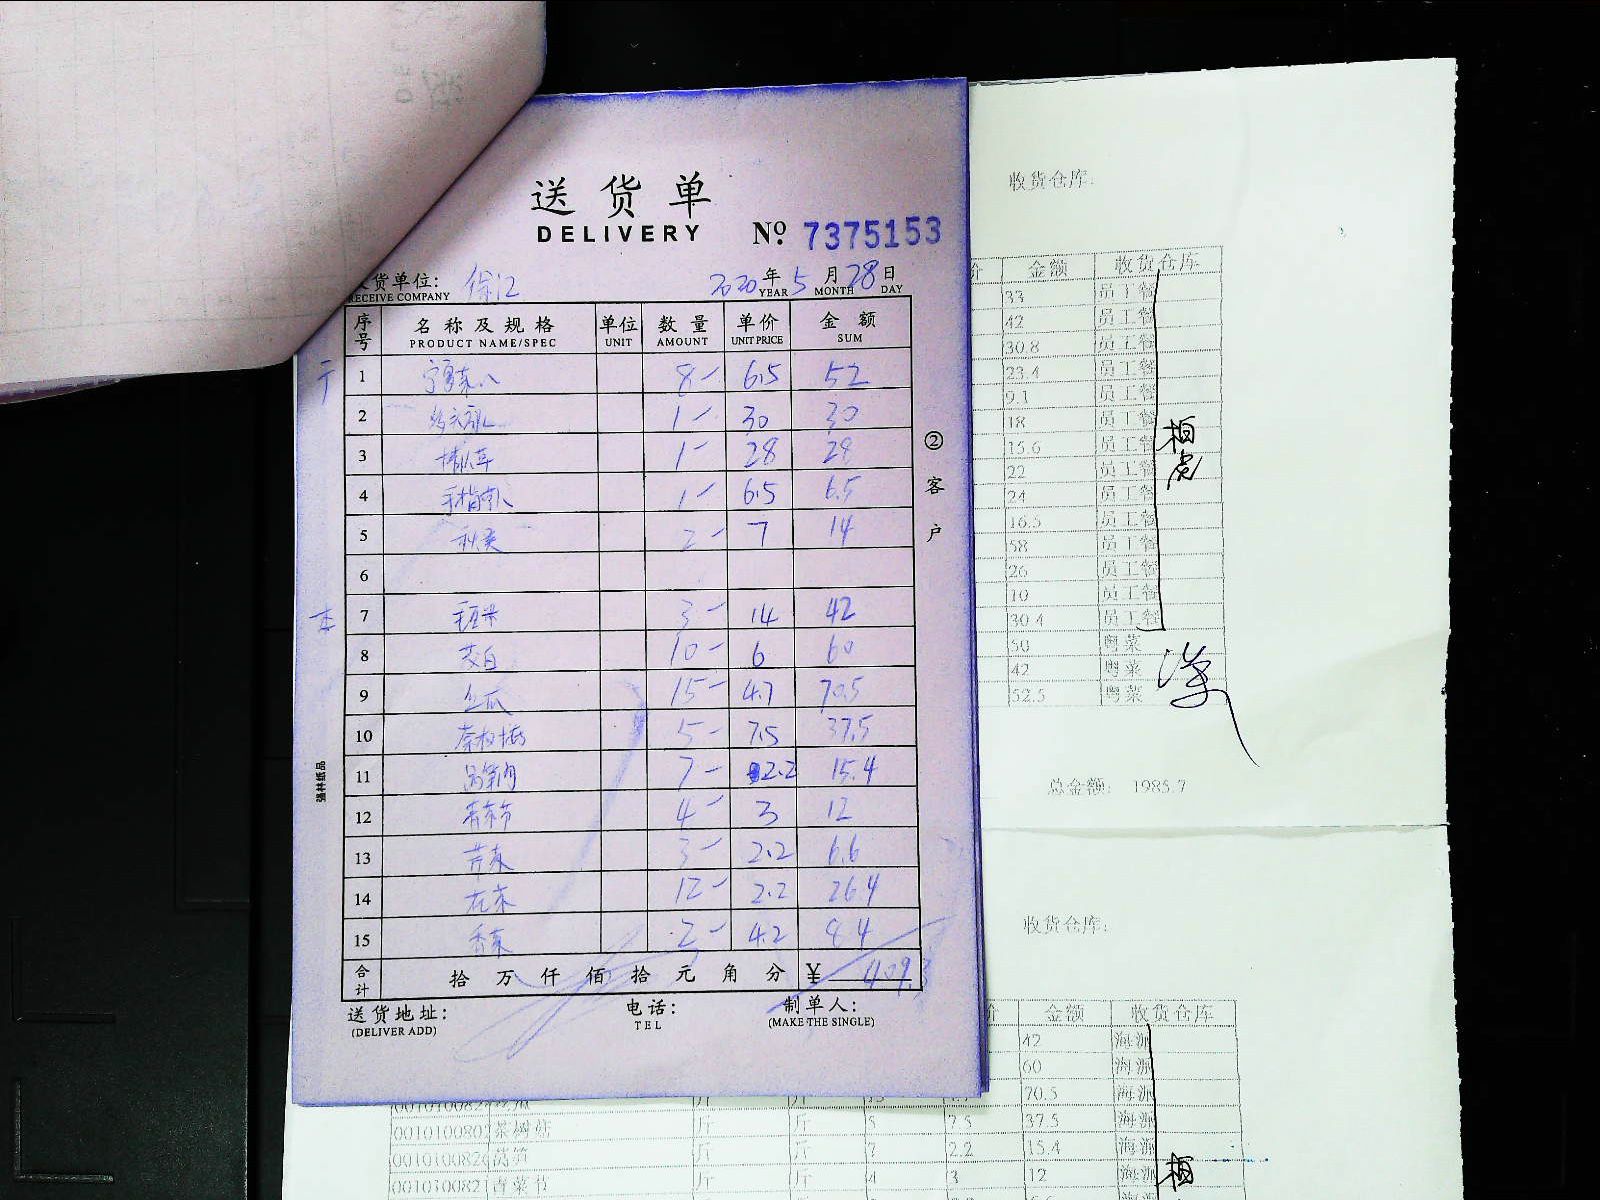 送货单
DELIVERY
№ 7375153
货单位: 徐汇 2020年5月28日
RECEIVE COMPANY YEAR MONTH DAY
序号 名称及规格 单位 数量 单价 金额
PRODUCT NAME/SPEC UNIT AMOUNT UNIT PRICE SUM
1 8- 6.5 52
2 1- 30 30
3 1- 28 28
4 1- 6.5 6.5
5 秋葵 2- 7 14
6
本 7 玉米 3- 14 42
8 茭白 10- 6 60
9 丝瓜 15- 4.7 70.5
10 茶树菇 5- 7.5 37.5
11 7- 2.2 15.4
12 青菜节 4- 3 12
13 芹菜 3- 2.2 6.6
14 花菜 12- 2.2 26.4
15 香菜 2- 4.2 8.4
合计 拾万仟佰拾元角分 ¥ 409.3
送货地址: 电话: 制单人:
(DELIVER ADD) TEL (MAKE THE SINGLE)
②客户
强林纸品
收货仓库:
价 金额 收货仓库
33 员工餐
42 员工餐
30.8 员工餐
23.4 员工餐
9.1 员工餐
18 员工餐
15.6 员工餐
22 员工餐
24 员工餐
16.5 员工餐
58 员工餐
26 员工餐
10 员工餐
30.4 员工餐
50 粤菜
42 粤菜
52.5 粤菜
总金额: 1985.7
收货仓库:
价 金额 收货仓库
42 海派
60 海派
70.5 海派
001010080 茶树菇 斤 斤 5 7.5 37.5 海派
001010082 莴笋 斤 斤 7 2.2 15.4 海派
001010082 青菜节 斤 斤 4 3 12 海派